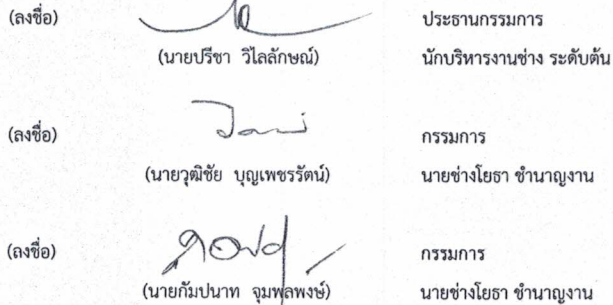 (ลงชื่อ) ประธานกรรมการ
(นายปรีชา วิไลลักษณ์) นักบริหารงานช่าง ระดับต้น
(ลงชื่อ) กรรมการ
(นายวุฒิชัย บุญเพชรรัตน์) นายช่างโยธา ชำนาญงาน
(ลงชื่อ) กรรมการ
(นายกัมปนาท จุมพลพงษ์) นายช่างโยธา ชำนาญงาน